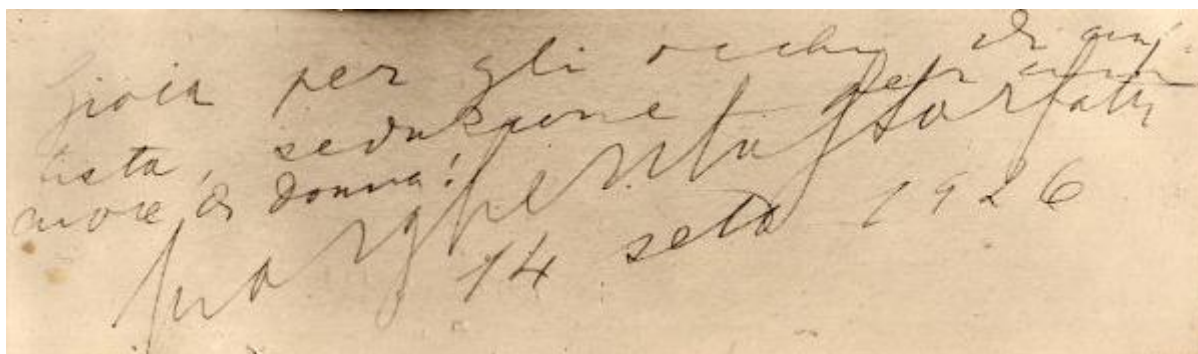 Gioia per gli occhi di ar-
tista, seduzione per
cuore di donna!
Margherita G Sarfatti
14 setto 1926